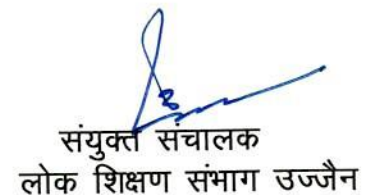 संयुक्त संचालक
लोक शिक्षण संभाग उज्जैन